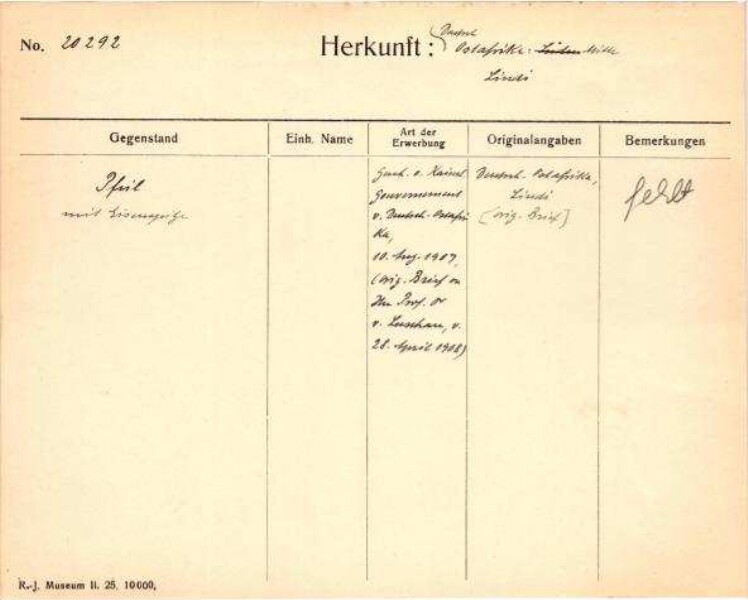 No. 20292
Herkunft: Deutsch Ostafrika. Süden Mitte
Lindi
Gegenstand
Einh. Name
Art der Erwerbung
Originalangaben
Bemerkungen
Pfeil
mit Eisenspitze
Gesch. v. Kaiserl.
Gouvernement
v. Deutsch-Ostafri
ka,
10. Aug. 1907,
(orig. Brief an
Hrn Prof. Dr
v. Luschan, v.
28. April 1908)
Deutsch-Ostafrika,
Lindi
[orig. Brief]
fehlt
R.-J. Museum II. 25. 10000.